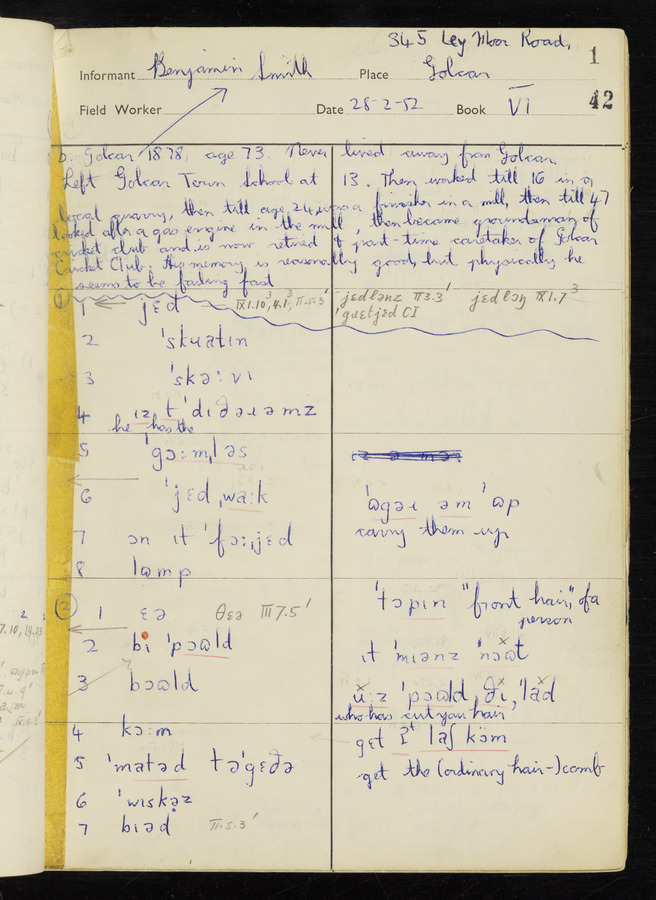 345 Ley Moor Road,
1
Informant Benjamin Smith Place Golcar
Field Worker Date 28-2-52 Book VI 42
b. Golcar 1878, age 73. Never lived away from Golcar.
Left Golcar Town School at 13. Then worked till 16 in a
local quarry, then till age 24 was a finisher in a mill, then till 47
looked after a gas engine in the mill, then became groundsman of
cricket club and is now retired & part-time caretaker of Golcar
Cricket Club. His memory is reasonably good, but physically he
seems to be failing fast
① 1 jɛd IX1.10³, 4.1³, II.5.3' jɛdlənz II3.3' jɛdləŋ IX1.7³
'guɛtjɛd CI
2 'skuatin
3 'skə:vɪ
4 ɪz t 'dɪðəɹəmz
he has the
5 'gɔ:m,ləs
6 'jɛd,wa:k 'ɷgəɪ əm 'ɷp
carry them up
7 ɔn ɪt 'fɔ:ɹjɛd
8 lɷmp
② 1 ɛə θɛə III7.5' 'tɔpɪn "front hair," of a
person
2 bɪ 'pɔɷld ɪt 'mɪənz 'nɔɷt
3 bɔɷld u:z 'pɔɷld ðɪ, 'lad
who has cut your hair
4 kɔ:m gɛt ʔt laʃ kɔm
5 'matəd tə'gɛðə get the (ordinary hair-)comb
6 'wɪskəz
7 bɪəd II.5.3'